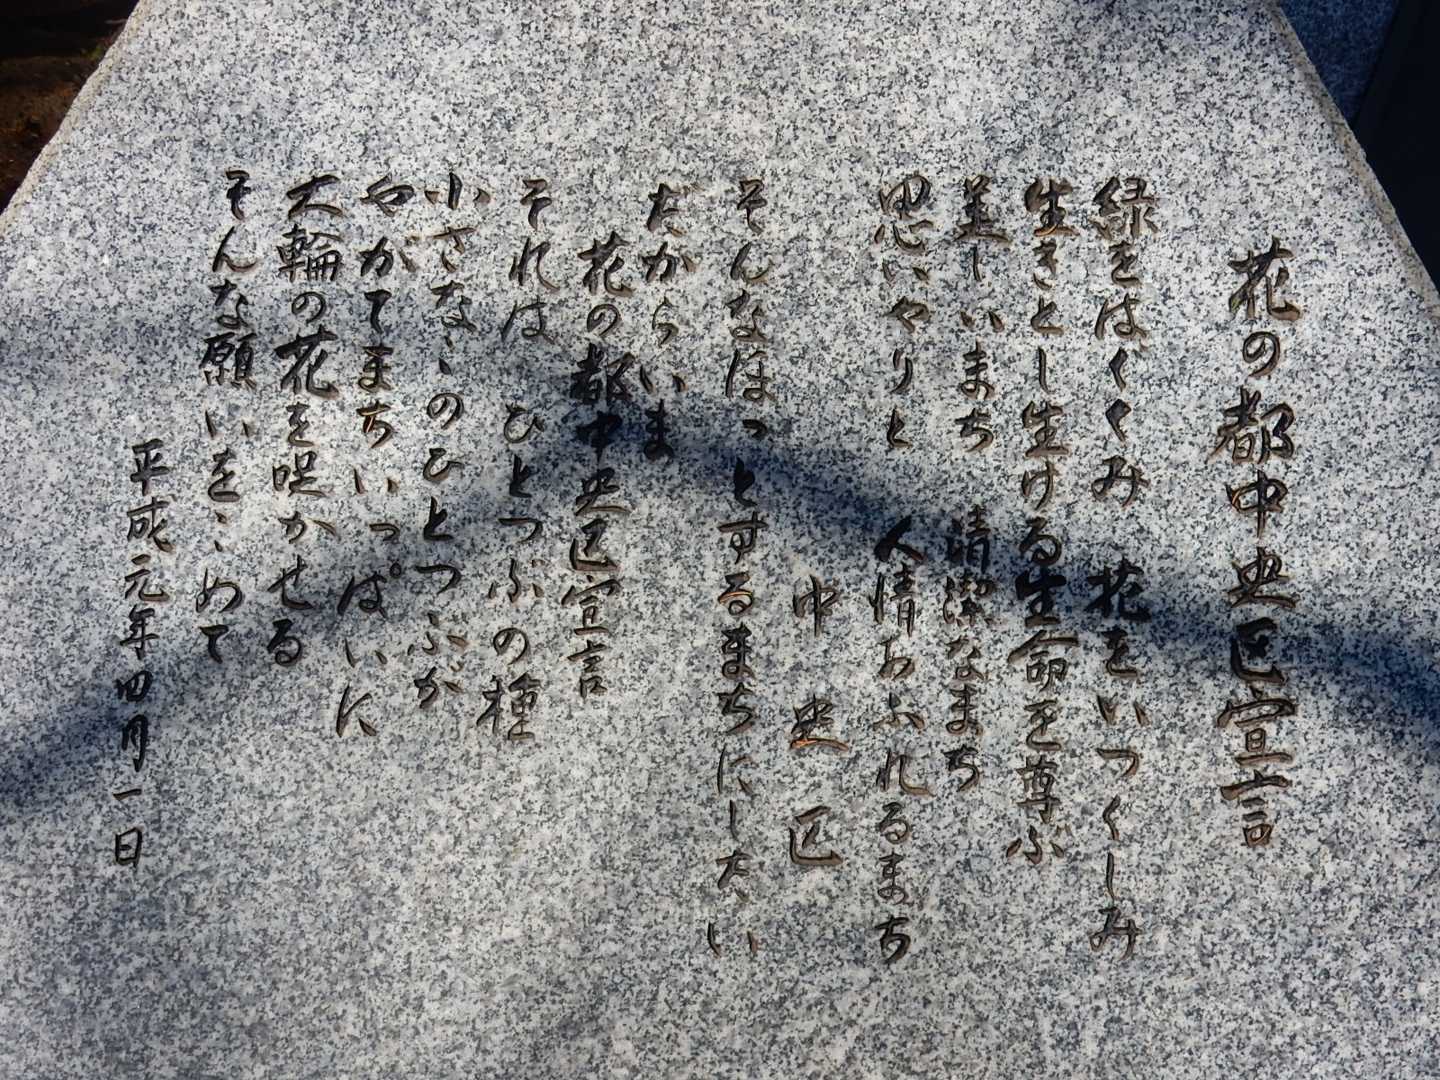 花の都中央区宣言
緑をはぐくみ　花をいつくしみ
生きとし生ける生命を尊ぶ
美しいまち　清潔なまち
思いやりと　人情あふれるまち
中央区
そんなほっとするまちにしたい
だからいま
花の都中央区宣言
それは　ひとつぶの種
小さなこのひとつぶが
やがてまちいっぱいに
大輪の花を咲かせる
そんな願いをこめて
平成元年四月一日